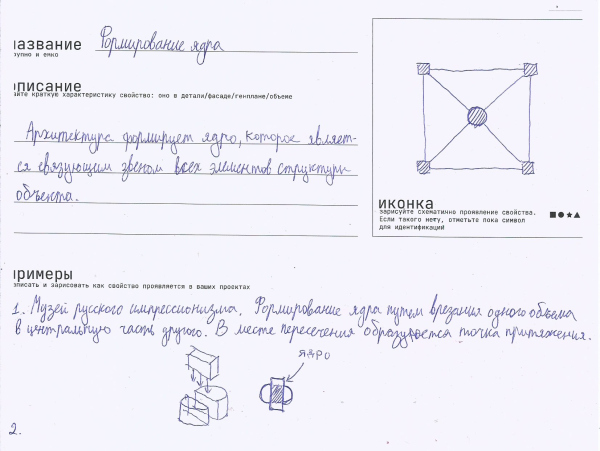 азвание
Формирование ядра
тупно и емко
писание
йте краткую характеристику свойство: оно в детали/фасаде/генплане/объеме
Архитектура формирует ядро, которое являет-
ся связующим звеном всех элементов структуры
объекта.
иконка
зарисуйте схематично проявление свойства.
Если такого нету, отметьте пока символ
для идентификаций
римеры
описать и зарисовать как свойство проявляется в ваших проектах
1. Музей русского импрессионизма. Формирование ядра путем врезания одного объема
в центральную часть другого. В месте пересечения образуется точка притяжения.
ЯДРО
2.